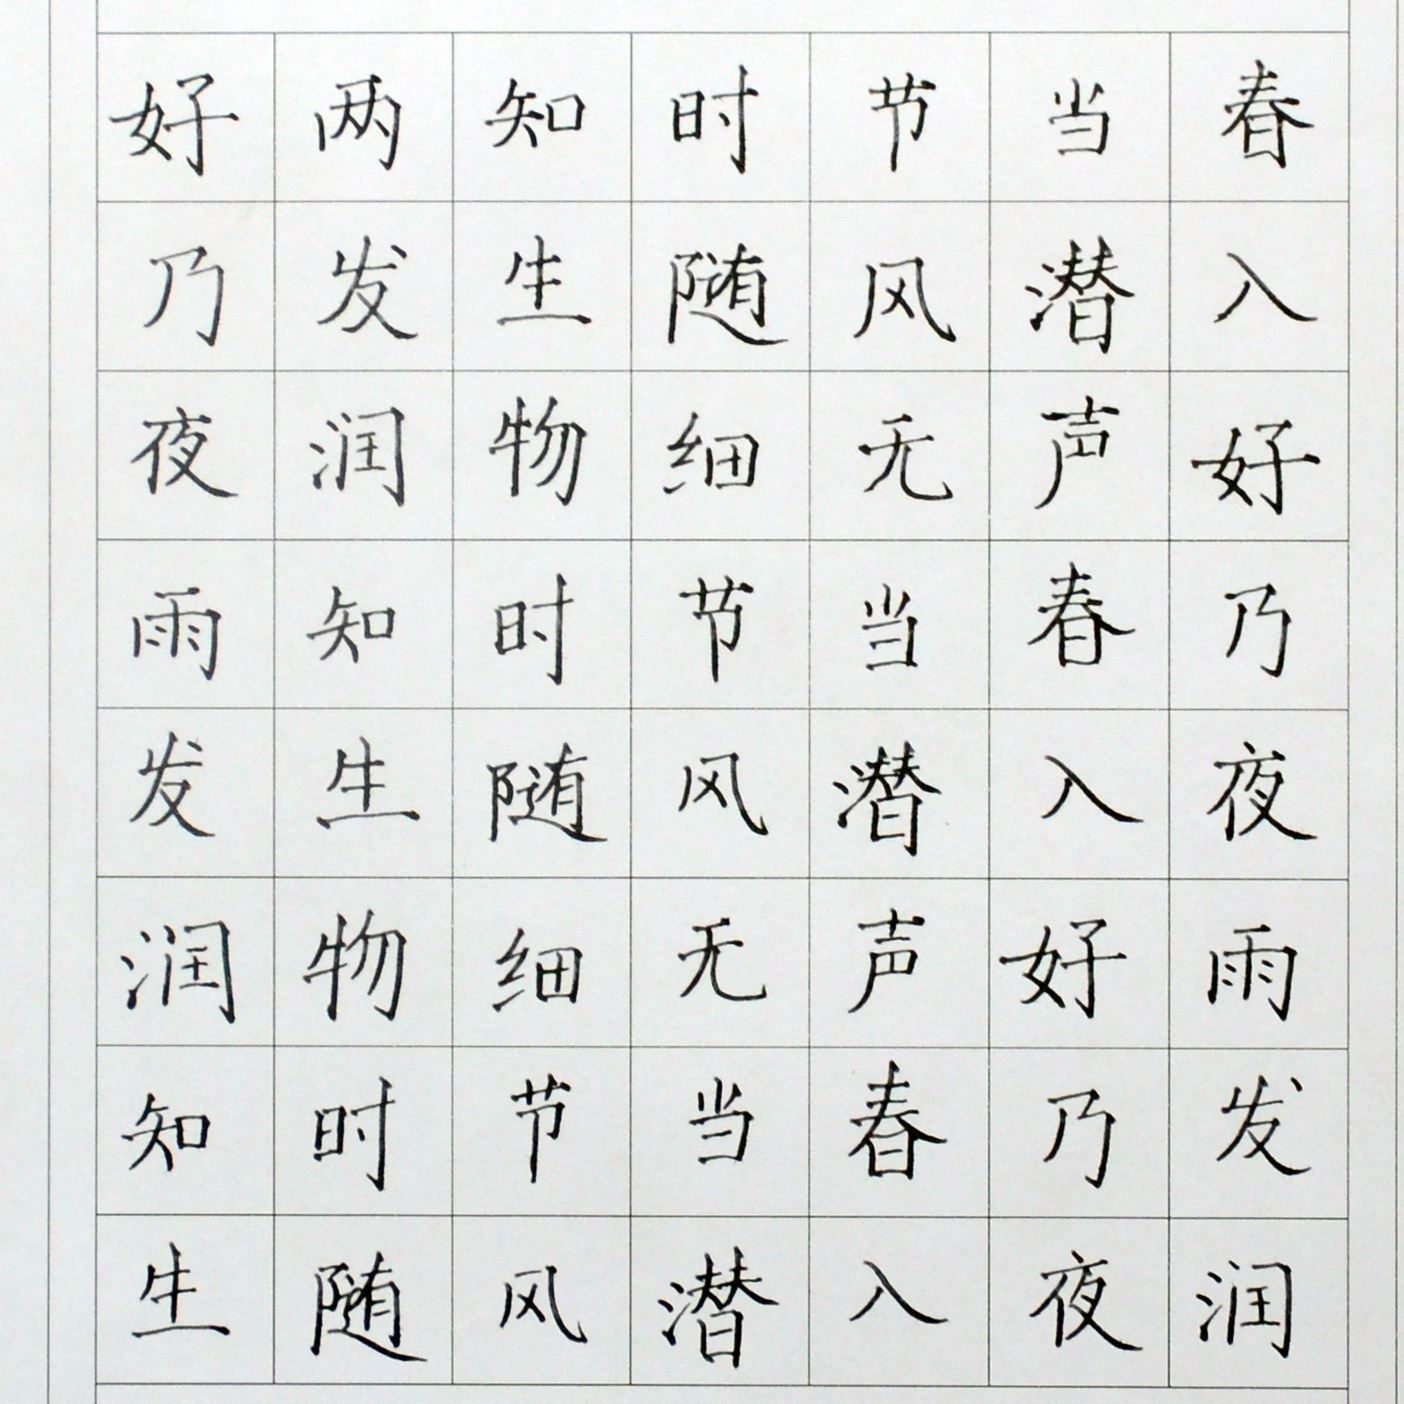 好两知时节当春
乃发生随风潜入
夜润物细无声好
雨知时节当春乃
发生随风潜入夜
润物细无声好雨
知时节当春乃发
生随风潜入夜润